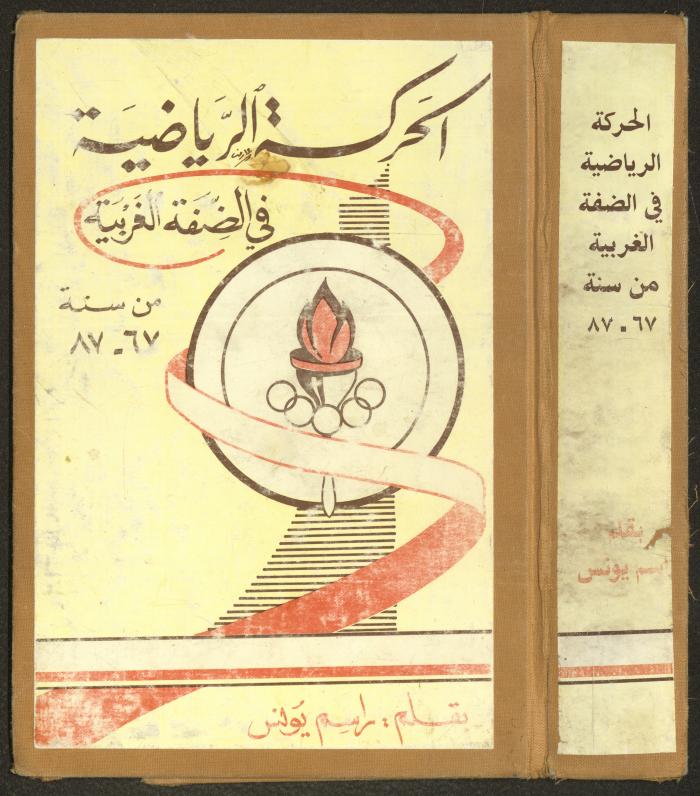 الحَركة الرَّيَاضيَة
في الضِفَة الغَربيَة
من سنة
٦٧ـ ٨٧
بقلم : راسم يَونس
الحركة
الرياضية
في الضفة
الغربية
من سنة
٦٧ ـ ٨٧
بقلم
راسم يونس